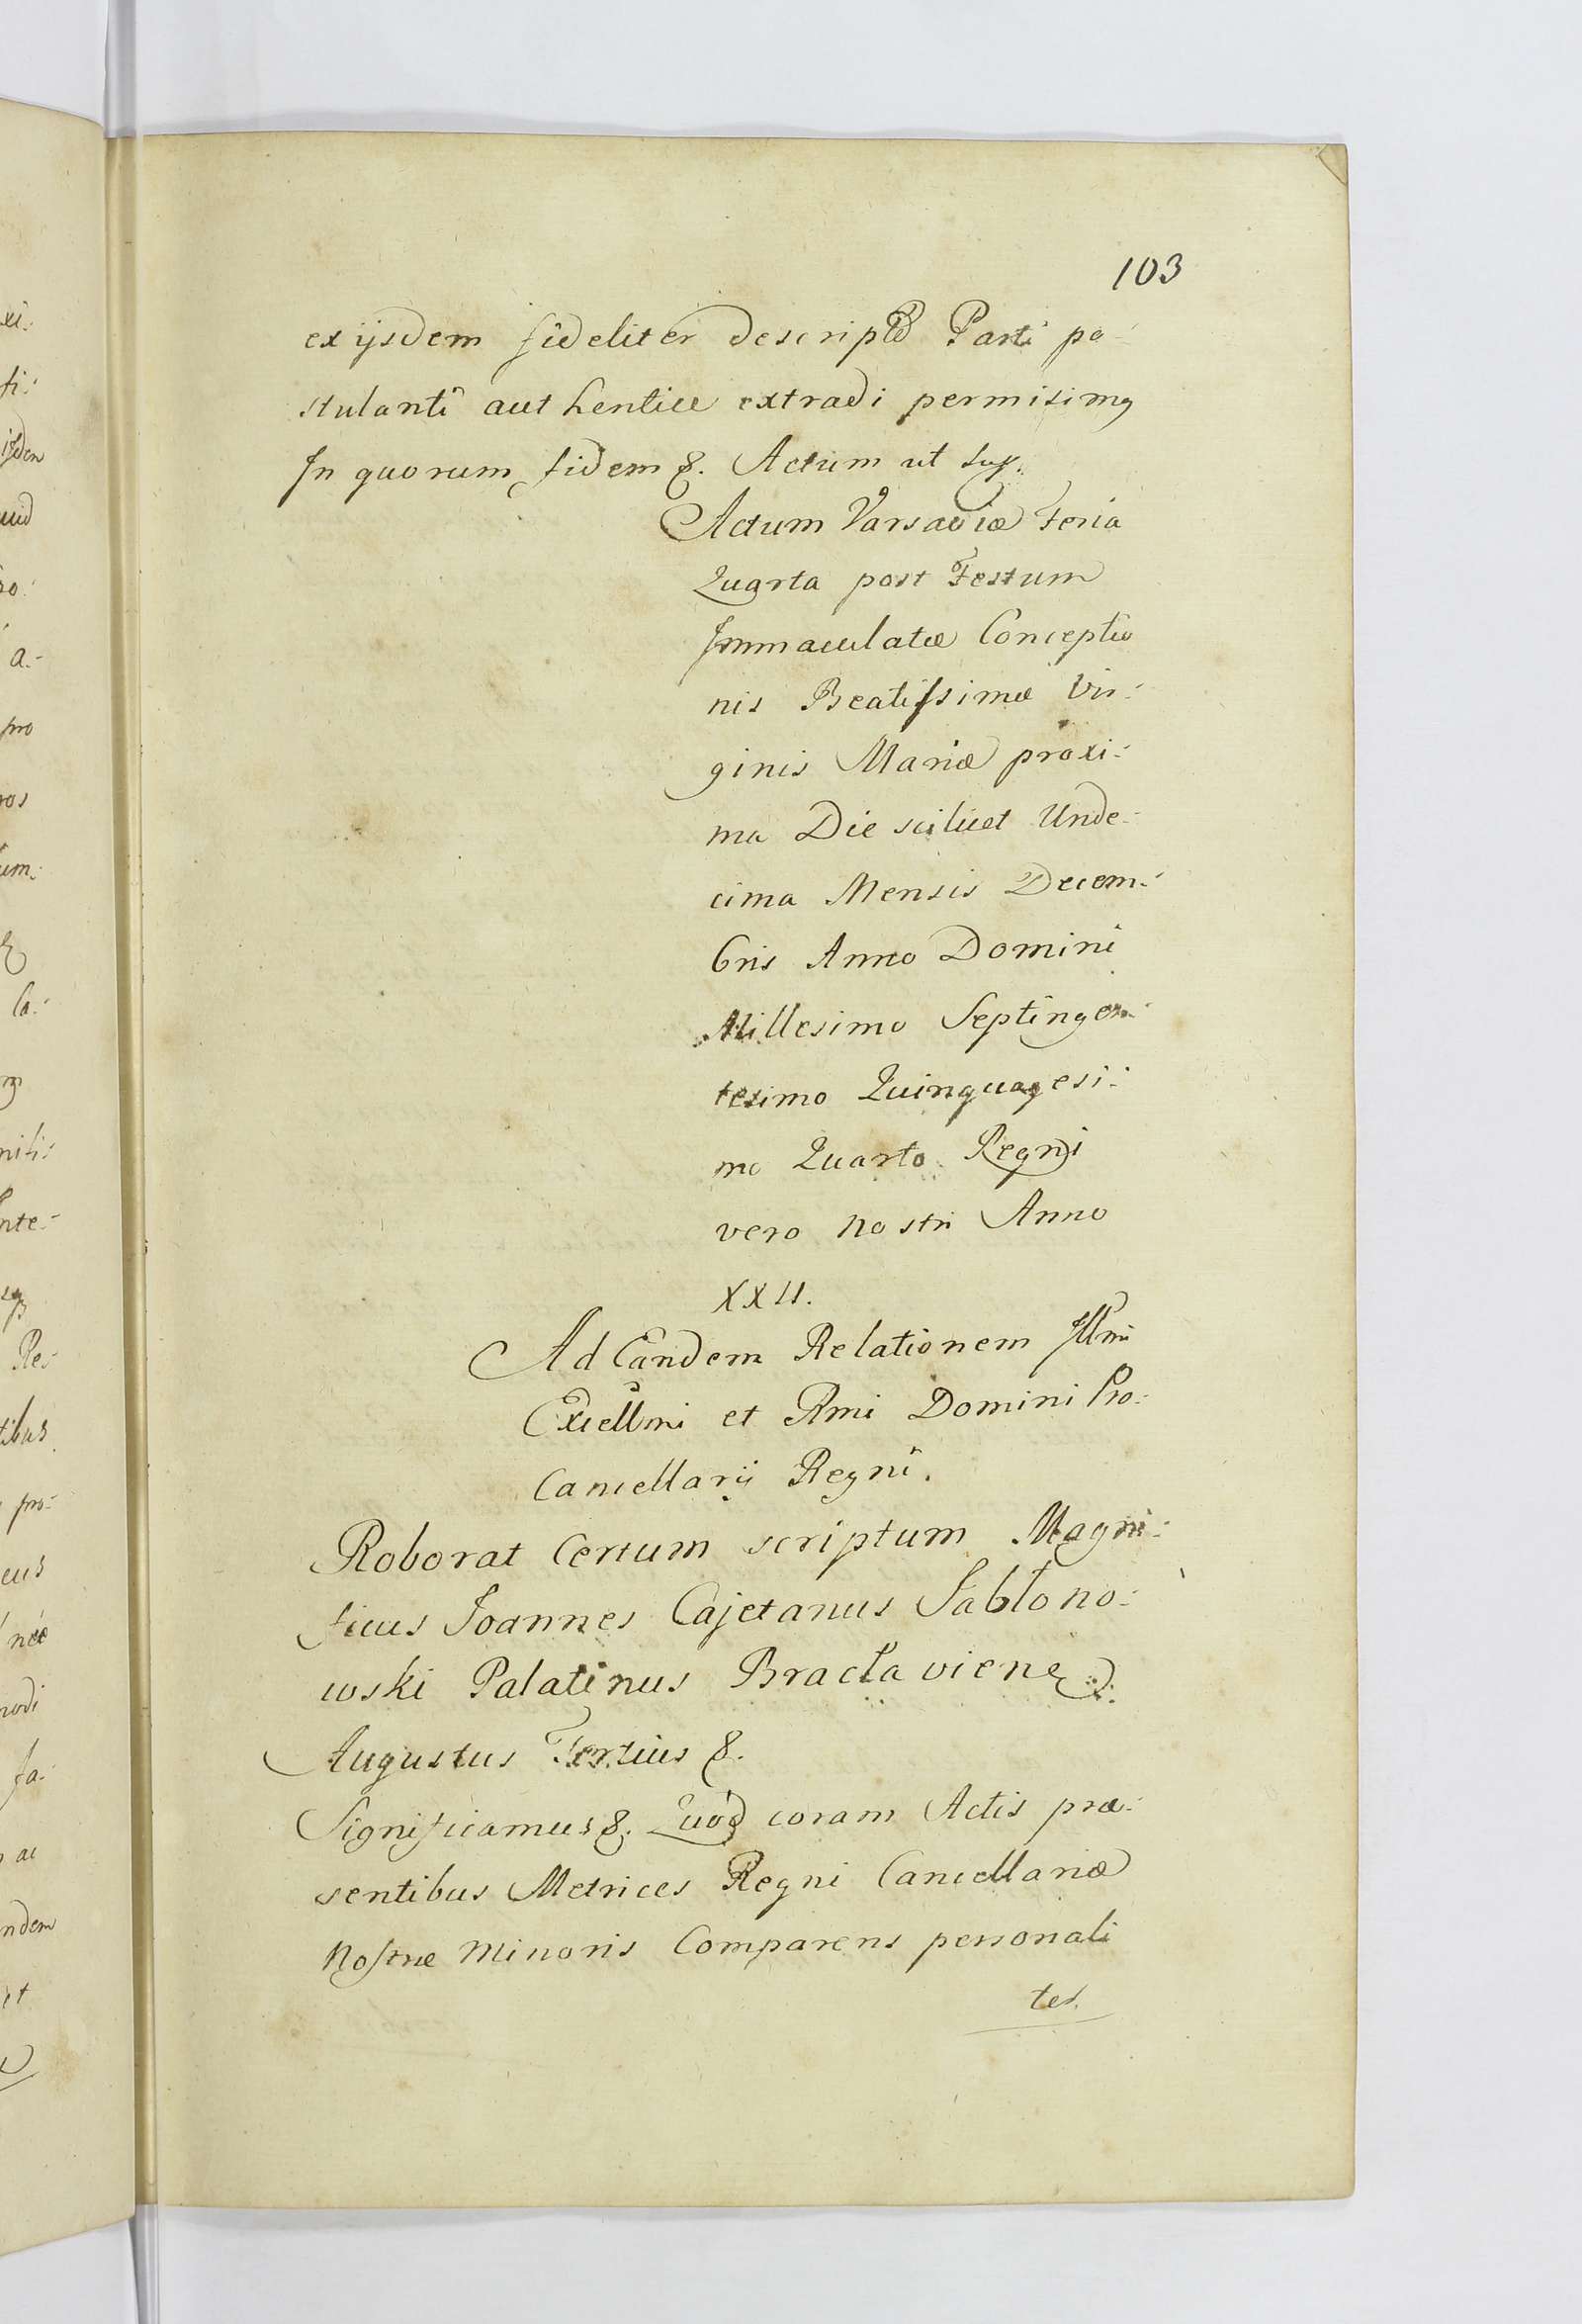 103
ex ijsdem fideliter descripta Parti po-
stulanti authentice extradi permisimq
In quorum fidem &. Actum ut sup.
Actum Varsaviæ Feria
Quarta post Festum
Immaculatæ Conceptio
nis Beatissimæ Vir-
ginis Mariæ proxi-
ma Die scilicet Unde-
cima Mensis Decem-
bris Anno Domini
Millesimo Septingen-
tesimo Quinquagesi-
mo Quarto Regni
vero nostri Anno
XXII.
Ad Eandem Relationem Illmi
Excellmi et Rmi Domini Pro-
Cancellarij Regni.
Roborat Certum scriptum Magni-
ficus Joannes Cajetanus Jabłono-
wski Palatinus Bracłaviens
Augustus Tertius &.
Significamus &. Quod coram Actis præ-
sentibus Metrices Regni Cancellariæ
Nostræ Minoris Comparens personali
ter.